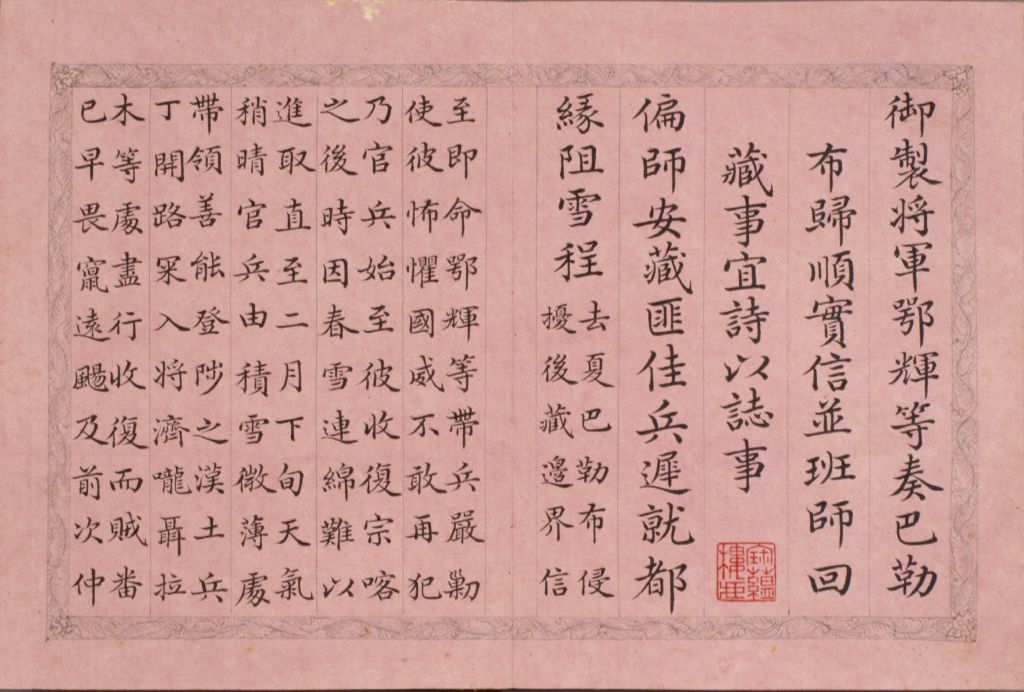 御製将軍鄂輝等奏巴勒
布歸順實信並班師回
藏事宜詩以誌事
偏師安藏匪佳兵遲就都
緣阻雪程
去夏巴勒布侵
擾後藏邊界信
至即命鄂輝等帶兵嚴勦
使彼怖懼國威不敢再犯
乃官兵始至彼收復宗喀
之後時因春雪連綿難以
進取直至二月下旬天氣
稍晴官兵由積雪微薄處
帶領善能登陟之漢土兵
丁開路冞入将濟嚨聶拉
木等處盡行收復而賊番
已早畏竄遠颺及前次仲